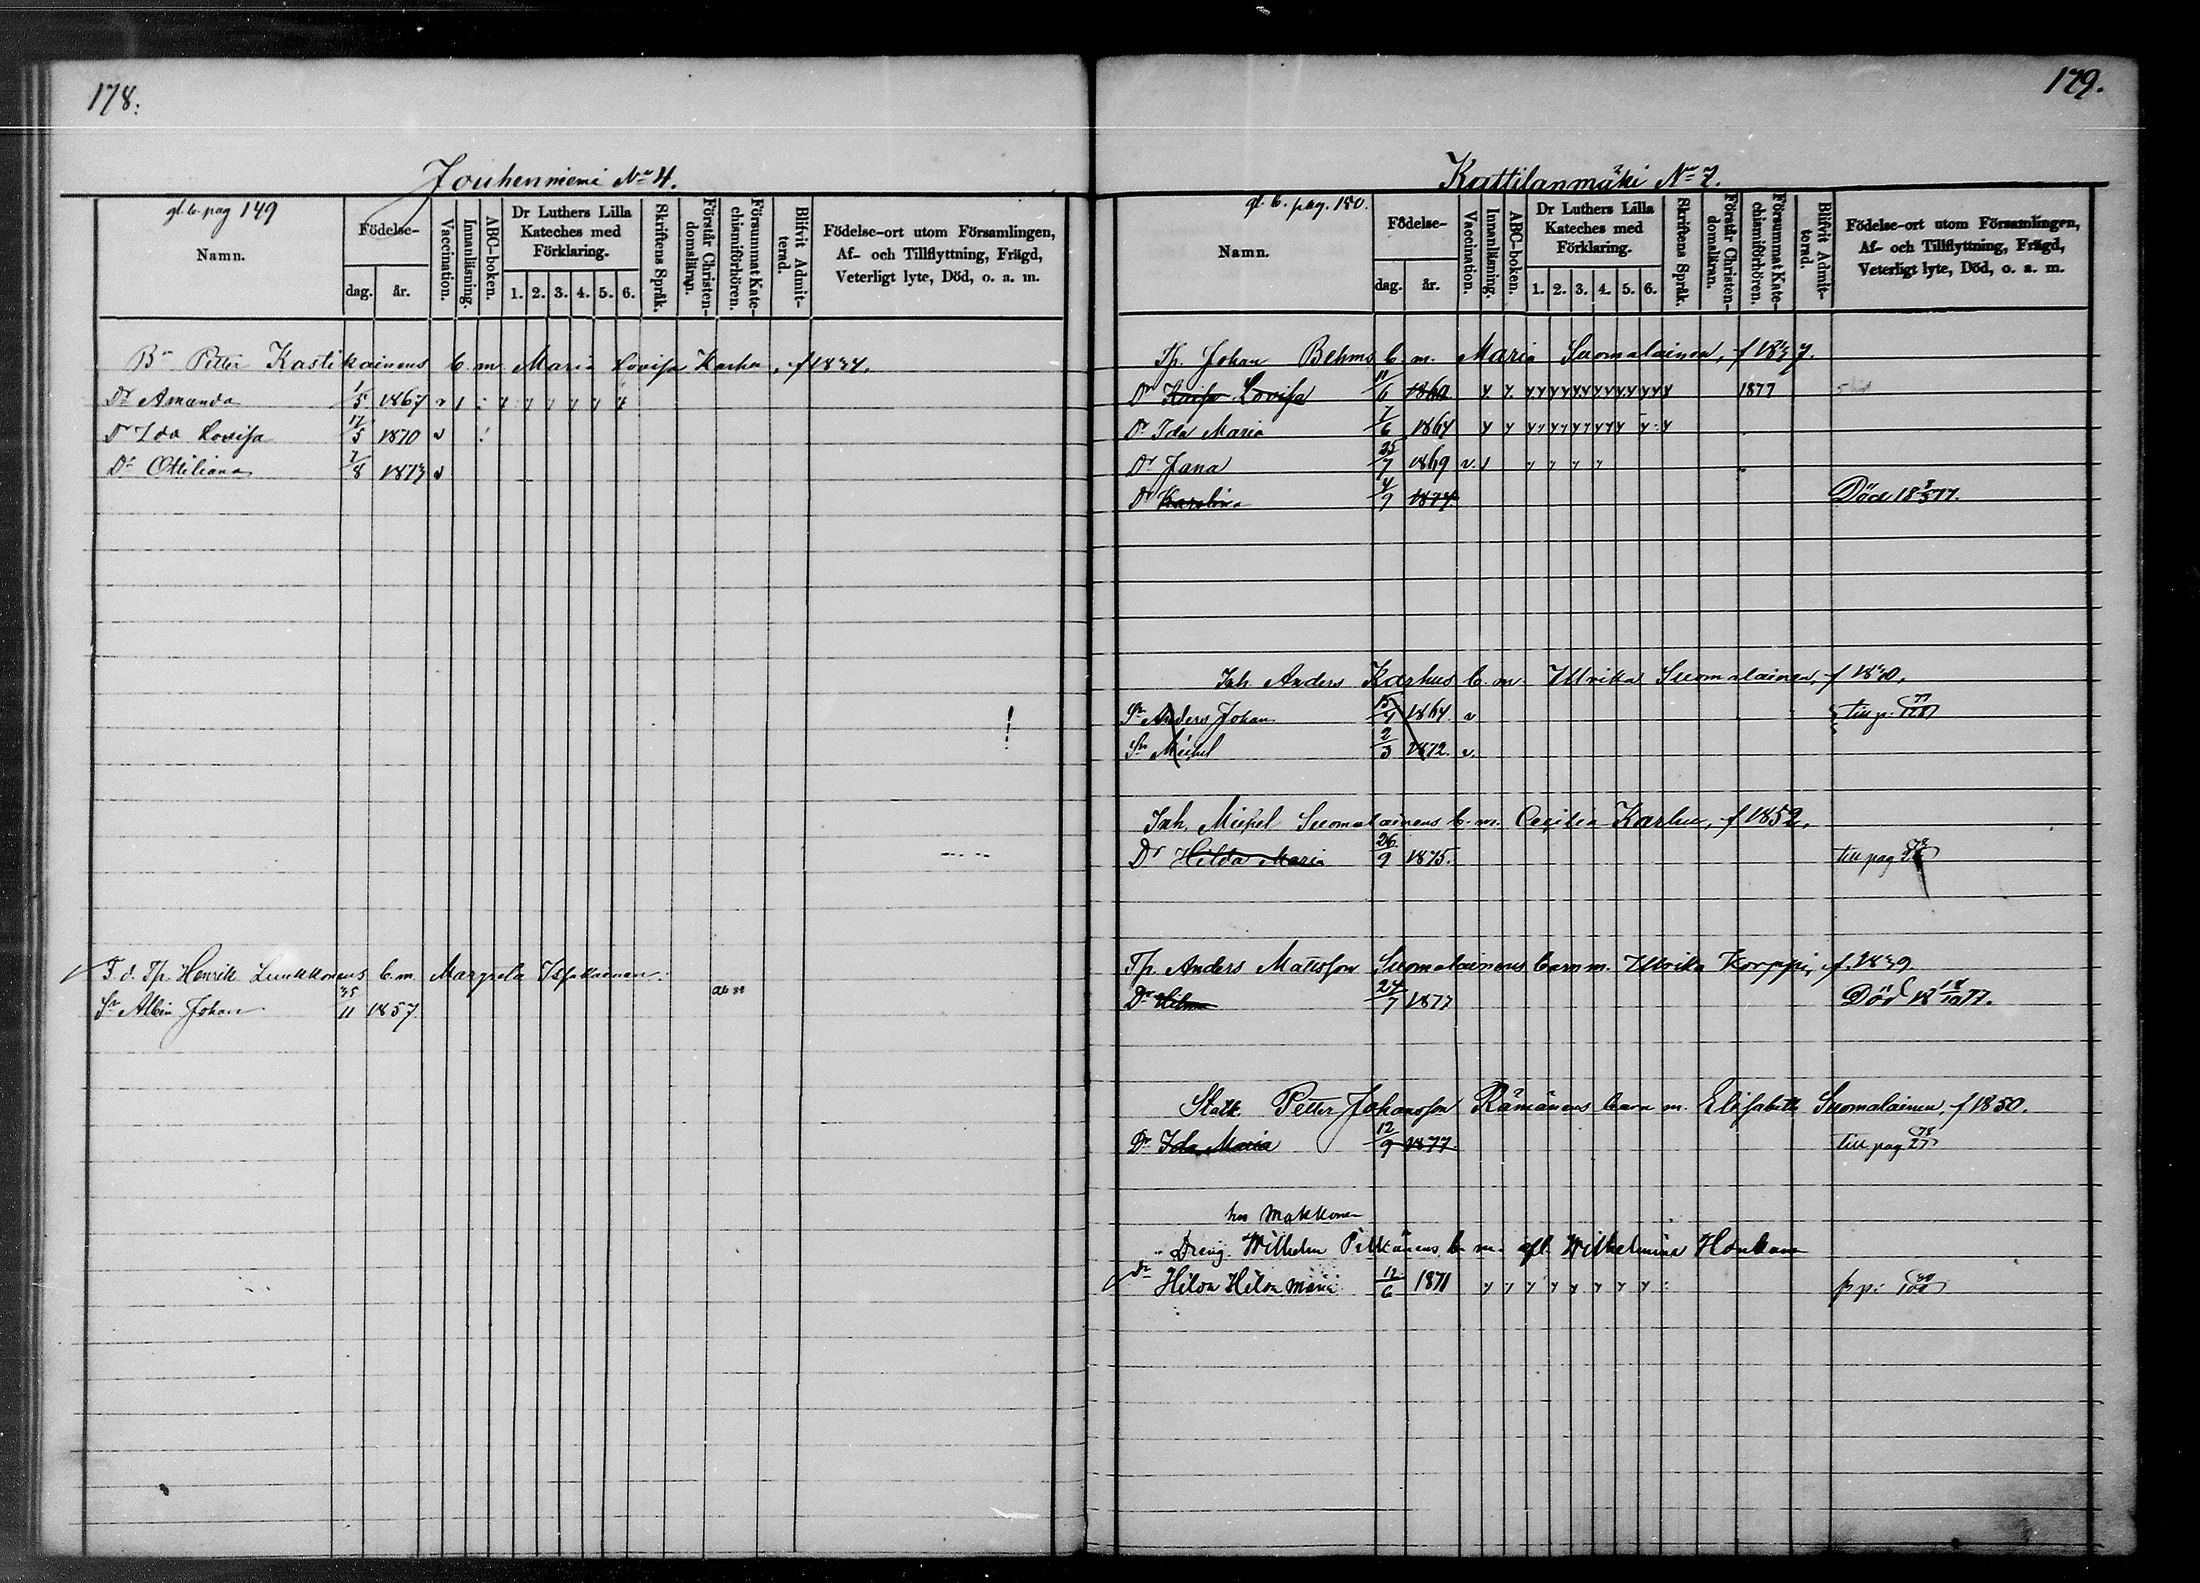 178.
Jouhenniemi No 4.
gl. b. pag 149
Namn.
Födelse-
dag. år.
Vaccination.
Innanläsning.
ABC-boken.
Dr Luthers Lilla Kateches med Förklaring.
1. 2. 3. 4. 5. 6.
Skriftens Språk.
Förstår Christen-domsläran.
Försummat Kate-chismiförhören.
Blifvit Admit-terad.
Födelse-ort utom Församlingen, Af- och Tillflyttning, Frägd, Veterligt lyte, Död, o. a. m.
Bn Petter Kastikainens b. m. Maria Lovisa Karhu, f 1834.
Dr Amanda 1/5 1867 v
Dr Ida Lovisa 17/5 1870 v
Dr Ottiliana 7/8 1873 v
F. d. Tp. Henrik Lunkkonens b. m. Margreta
Sn Albin Johan 11 1857
179.
Kattilanmäki No 7.
gl. b. pag. 150.
Namn.
Födelse-
dag. år.
Vaccination.
Innanläsning.
ABC-boken.
Dr Luthers Lilla Kateches med Förklaring.
1. 2. 3. 4. 5. 6.
Skriftens Språk.
Förstår Christen-domsläran.
Försummat Kate-chismiförhören.
Blifvit Admit-terad.
Födelse-ort utom Församlingen, Af- och Tillflyttning, Frägd, Veterligt lyte, Död, o. a. m.
Tp. Johan Behms b. m. Maria Suomalainen, f
Dr Lovisa 11/6 1860 1877
Dr Ida Maria 7/6 1864
Dr Jana 25/7 1869 v.
Dr Karolina 4/9 1874. Död
Inh Anders Karhus b. m. Ulrika Suomalainen, f
Sn Anders Johan 15/4 1864 v till p.
Sn Michel 2/3 1872. v.
Inh. Michel Suomalainens b. m. Cecilia Karhu, f 1852.
Dr Hilda Maria 26/9 1875. till pag
Tp Anders Matsson Suomalainens barn m. Ulrika Korppi, f. 1839.
Dr Helena 24/7 1877 Död 18 18/10 77.
Statk. Petter Johansson Rämänens barn m. Elisabeth Suomalainen, f 1850.
Dr Ida Maria 12/9 1877. till pag 78/27
hos Makkonen
Dreng. Wilhelm Pitkänens b. m. afl. Wilhelmina Honkan
Dr Hilda Hilda Maria 12/6 1871